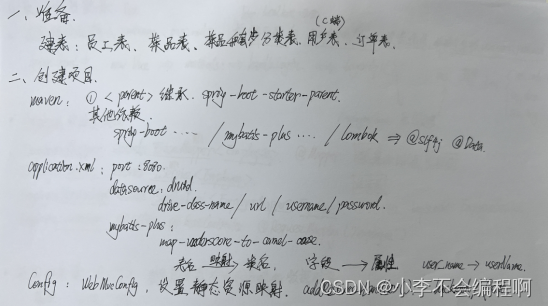 一、准备.
(C端)
建表: 员工表、菜品表、菜品和套餐分类表. 用户表、订单表.
二、创建项目.
maven: ① <parent> 继承. spring-boot-starter-parent.
其他依赖
spring-boot ····· / mybatis-plus ···· / lombok ⇒ @slf4j @Data.
application.xml: port: 8080.
datasource: druid.
drive-class-name / url / username / password.
mybatis-plus:
map-underscore-to-camel-case.
表名 映射→ 类名, 字段 → 属性 user_name → userName.
Config: WebMvcConfig, 设置静态资源映射.
CSDN @小李不会编程啊